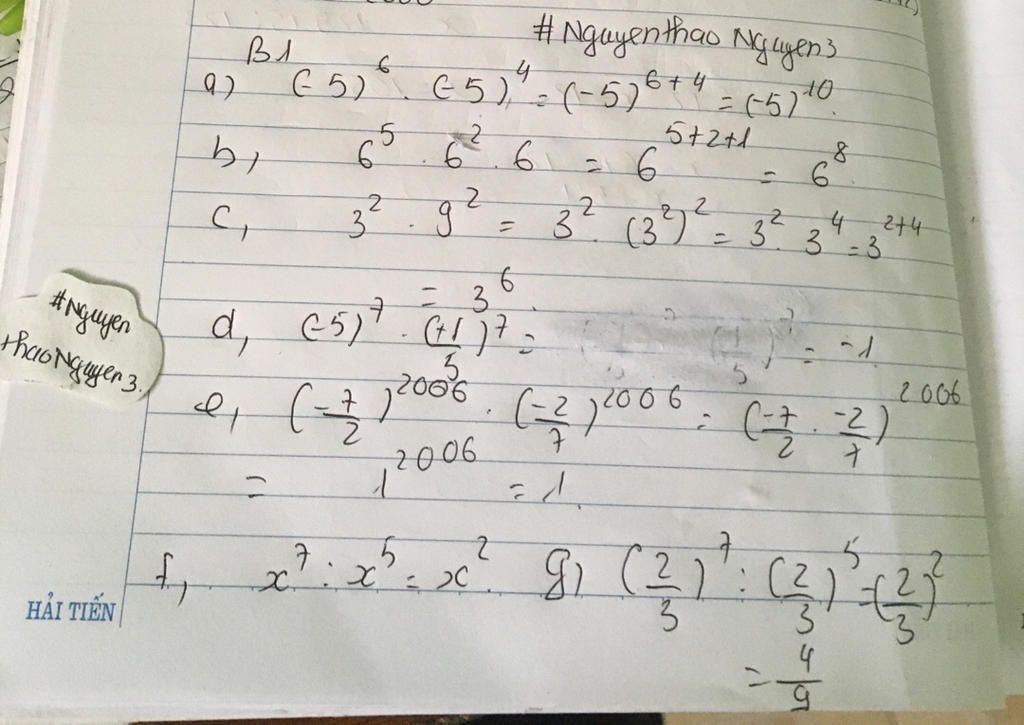 #Nguyenthao Nguyen3
B1
a) (-5)^6 . (-5)^4 = (-5)^{6+4} = (-5)^{10}.
b, 6^5 . 6^2 . 6 = 6^{5+2+1} = 6^8.
c, 3^2 . 9^2 = 3^2 . (3^2)^2 = 3^2 . 3^4 = 3^{2+4}
= 3^6.
#Nguyen
thaoNguyen3.
d, (-5)^7 . (+1/5)^7 = = -1.
e, (-7/2)^{2006} . (-2/7)^{2006} = (-7/2 . -2/7)^{2006}
= 1^{2006} = 1.
f, x^7 : x^5 = x^2. g) (2/3)^7 : (2/3)^5 = (2/3)^2
= 4/9
HẢI TIẾN